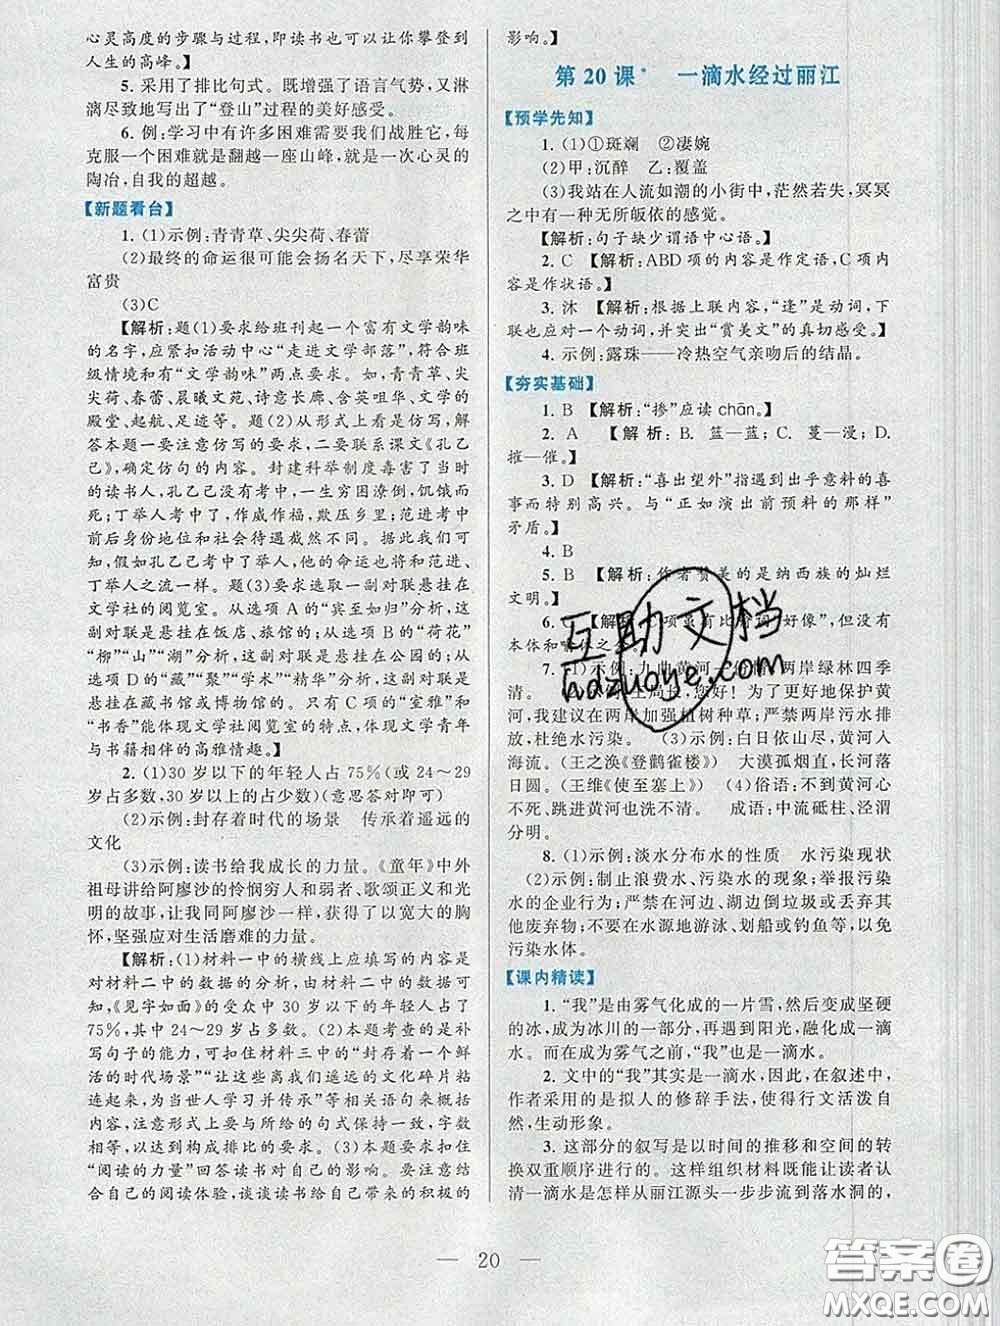 心灵高度的步骤与过程,即读书也可以让你攀登到
人生的高峰。】
5. 采用了排比句式。既增强了语言气势,又淋
漓尽致地写出了“登山”过程的美好感受。
6. 例:学习中有许多困难需要我们战胜它,每
克服一个困难就是翻越一座山峰,就是一次心灵的
陶冶,自我的超越。
【新题看台】
1. (1)示例:青青草、尖尖荷、春蕾
(2)最终的命运很可能会扬名天下,尽享荣华
富贵
(3)C
【解析:题(1)要求给班刊起一个富有文学韵味
的名字,应紧扣活动中心“走进文学部落”,符合班
级情境和有“文学韵味”两点要求。如,青青草、尖
尖荷、春蕾、晨曦文苑、诗意长廊、含英咀华、文学的
殿堂、起航、足迹等。题(2)从形式上看是仿写,解
答本题一要注意仿写的要求,二要联系课文《孔乙
己》,确定仿句的内容。封建科举制度毒害了当时
的读书人,孔乙己没有考中,一生穷困潦倒,饥饿而
死;丁举人考中了,作威作福,欺压乡里;范进考中
前后身份地位和待遇截然不同。据此,我们可知,
假如孔乙己考中了举人,他的命运也将和范进、
丁举人之流一样。题(3)要求选取一副对联悬挂在
文学社的阅览室。从选项 A 的“宾至如归”分析,这
副对联是悬挂在饭店、旅馆的;从选项 B 的“荷花”
“柳”“山”“湖”分析,这副对联是悬挂在公园的;从
选项 D 的“藏”“聚”“学术”“精华”分析,这副对联
是悬挂在藏书馆或博物馆的。只有 C 项的“室雅”和
“书香”能体现文学社阅览室的特点,体现文学青年
与书籍相伴的高雅情趣。】
2. (1)30 岁以下的年轻人占 75%(或 24～29
岁占多数,30 岁以上的占少数)(意思答对即可)
(2)示例:封存着时代的场景　传承着遥远的
文化
(3)示例:读书给我成长的力量。《童年》中外
祖母讲给阿廖沙的怜悯穷人和弱者、歌颂正义和光
明的故事,让我同阿廖沙一样,获得了以宽大的胸
怀,坚强应对生活磨难的力量。
【解析:(1)材料一中的横线上应填写的内容是
对材料二中的数据的分析,由材料二中的数据可
知,《见字如面》的受众中 30 岁以下的年轻人占了
75%,其中 24～29 岁占多数。(2)本题考查的是补
写句子的能力,可结合材料三中的“封存着一个鲜
活的时代场景”“让这些我们遥远的文化碎片粘
连起来,为当世人学习并传承”等相关语句来概括
内容,注意形式上要与前给出的句式保持一致,字数
相等,以达到构成排比的要求。(3)本题要求结合
“阅读的力量”回答读书对自己的影响。要注意结合
自己的阅读体验,谈谈读书给自己带来的积极的
影响。】
第 20 课*　一滴水经过丽江
【预学先知】
1. (1)①斑斓　②凄婉
(2)甲:沉醉　乙:覆盖
(3)我站在人流如潮的小街中,茫然若失,冥冥
之中有一种无所皈依的感觉。
【解析:句子缺少谓语中心语。】
2. C　【解析:ABD 项的内容是作定语,C 项内
容是作状语。】
3. 沐　【解析:根据上联内容,“逢”是动词,下
联也应对一个动词,并突出“赏美文”的真切感受。】
4. 示例:露珠——冷热空气亲吻后的结晶。
【夯实基础】
1. B　【解析:“掺”应读 chān。】
2. A　【解析:B. 篮—蓝;C. 蔓—漫;D.
摧—催。】
3. D　【解析:“喜出望外”指遇到出乎意料的喜
事而特别高兴。与“正如演出前预料的那样”
矛盾。】
4. B
5. B　【解析:作者赞美的是纳西族的灿烂
文明。】
6. C　【解析:C 项虽有比喻词“好像”,但没有
本体和喻体之
7. (1)示例:九曲黄河一俗桥,两岸绿林四季
清。(2)示例:王局长,您好!为了更好地保护黄
河,我建议在两岸加强植树种草;严禁两岸污水排
放,杜绝水污染。(3)示例:白日依山尽,黄河入
海流。(王之涣《登鹳雀楼》)　大漠孤烟直,长河落
日圆。(王维《使至塞上》)　(4)俗语:不到黄河心
不死、跳进黄河也洗不清。　成语:中流砥柱、泾渭
分明。
8. (1)示例:淡水分布水的性质　水污染现状
(2)示例:制止浪费水、污染水的现象;举报污染
水的企业行为;严禁在河边、湖边倒垃圾或丢弃其
他废弃物;不在水源地游泳、划船或钓鱼等,以免
污染水体。
【课内精读】
1. “我”是由雾气化成的一片雪,然后变成坚硬
的冰,成为冰川的一部分,再遇到阳光,融化成一滴
水。而在成为雾气之前,“我”也是一滴水。
2. 文中的“我”其实是一滴水,因此,在叙述中,
作者采用的是拟人的修辞手法,使行文活泼自
然,生动形象。
3. 这部分的叙写是以时间的推移和空间的转
换双重顺序进行的。这样组织材料既能让读者认
清一滴水是怎样从丽江源头一步步流到落水洞的,
互助文档
hdzuoye.com
— 20 —
答案圈
MXQE.COM